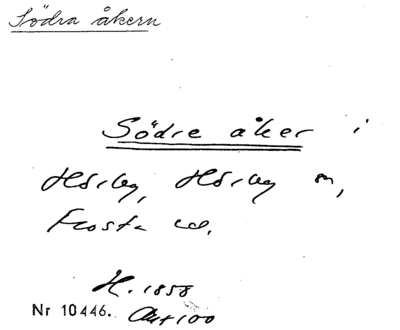 Södra åkern
Södre åker i
Hörby, Hörby sn,
Frosta hd.
H. 1858
Nr 10446. Akt 100